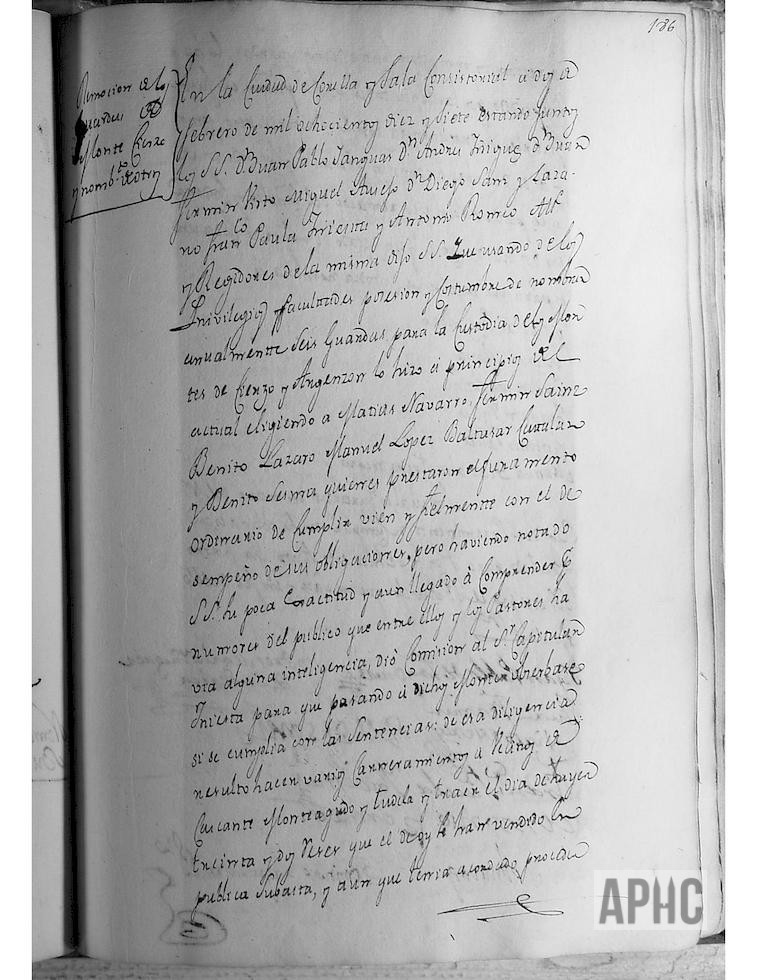 186
Remocion de los
Guardas de
Monte Cierzo
y nomb.to de otros
En la Ciudad de Corella y Sala Consistorial a dos de
febrero de mil ochocientos diez y siete estando juntos
los S.S. D.n Juan Pablo Sanguas D.n Andres Iñiguez D.n Juan
Fermin Virto Miguel D.n Diego Sanz y Laza-
no fran.co Paula Iniesta y Antonio Romeo Alc
y Regidores de la misma dijo S.S. Que usando de los
Privilegios facultades posesion y Costumbre de nombrar
anualmente Seis Guardas para la Custodia de los Mon
tes de Cierzo y Argenzon lo hizo a principios del
actual eligiendo a Matias Navarro, Fermin Sainz
Benito Lazaro Manuel Lopez Baltasar Catalan
y Benito Sesma quienes prestaron el juramento
Ordinario de Cumplir vien y fielmente con el de
sempeño de sus obligaciones, pero haviendo notado
S.S. la poca Exactitud y aun llegado à Comprender p.r
rumores del publico que entre ellos y los Pastores ha
via alguna inteligencia, diò Comision al S.r Capitular
Iniesta para que pasando a dichos Montes oberbase
si se cumplia con las Sentencias: de esa diligencia
resulto hacer varios Carneramientos a Vecinos de
Cascante Monteagudo y Tudela y traer el dia de hayer
treinta y dos Reses que el de oy se han vendido en
publica Subasta, y aun que tenia acordado proceder
APHC